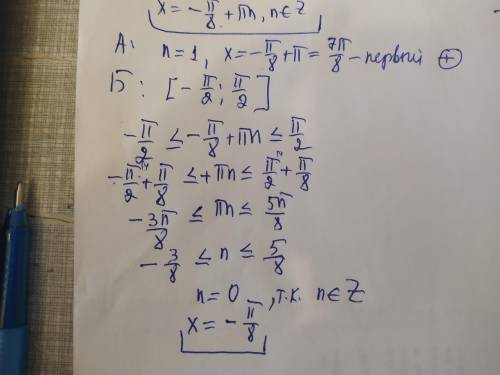 x = -π/8 + πn, n∈Z
А: n=1, x=-π/8+π=7π/8 - первый ⊕
Б: [-π/2; π/2]
-π/2 ≤ -π/8 + πn ≤ π/2
-π/2 + π/8 ≤ +πn ≤ π/2 + π/8
-3π/8 ≤ πn ≤ 5π/8
-3/8 ≤ n ≤ 5/8
n=0, т.к. n∈Z
x = -π/8